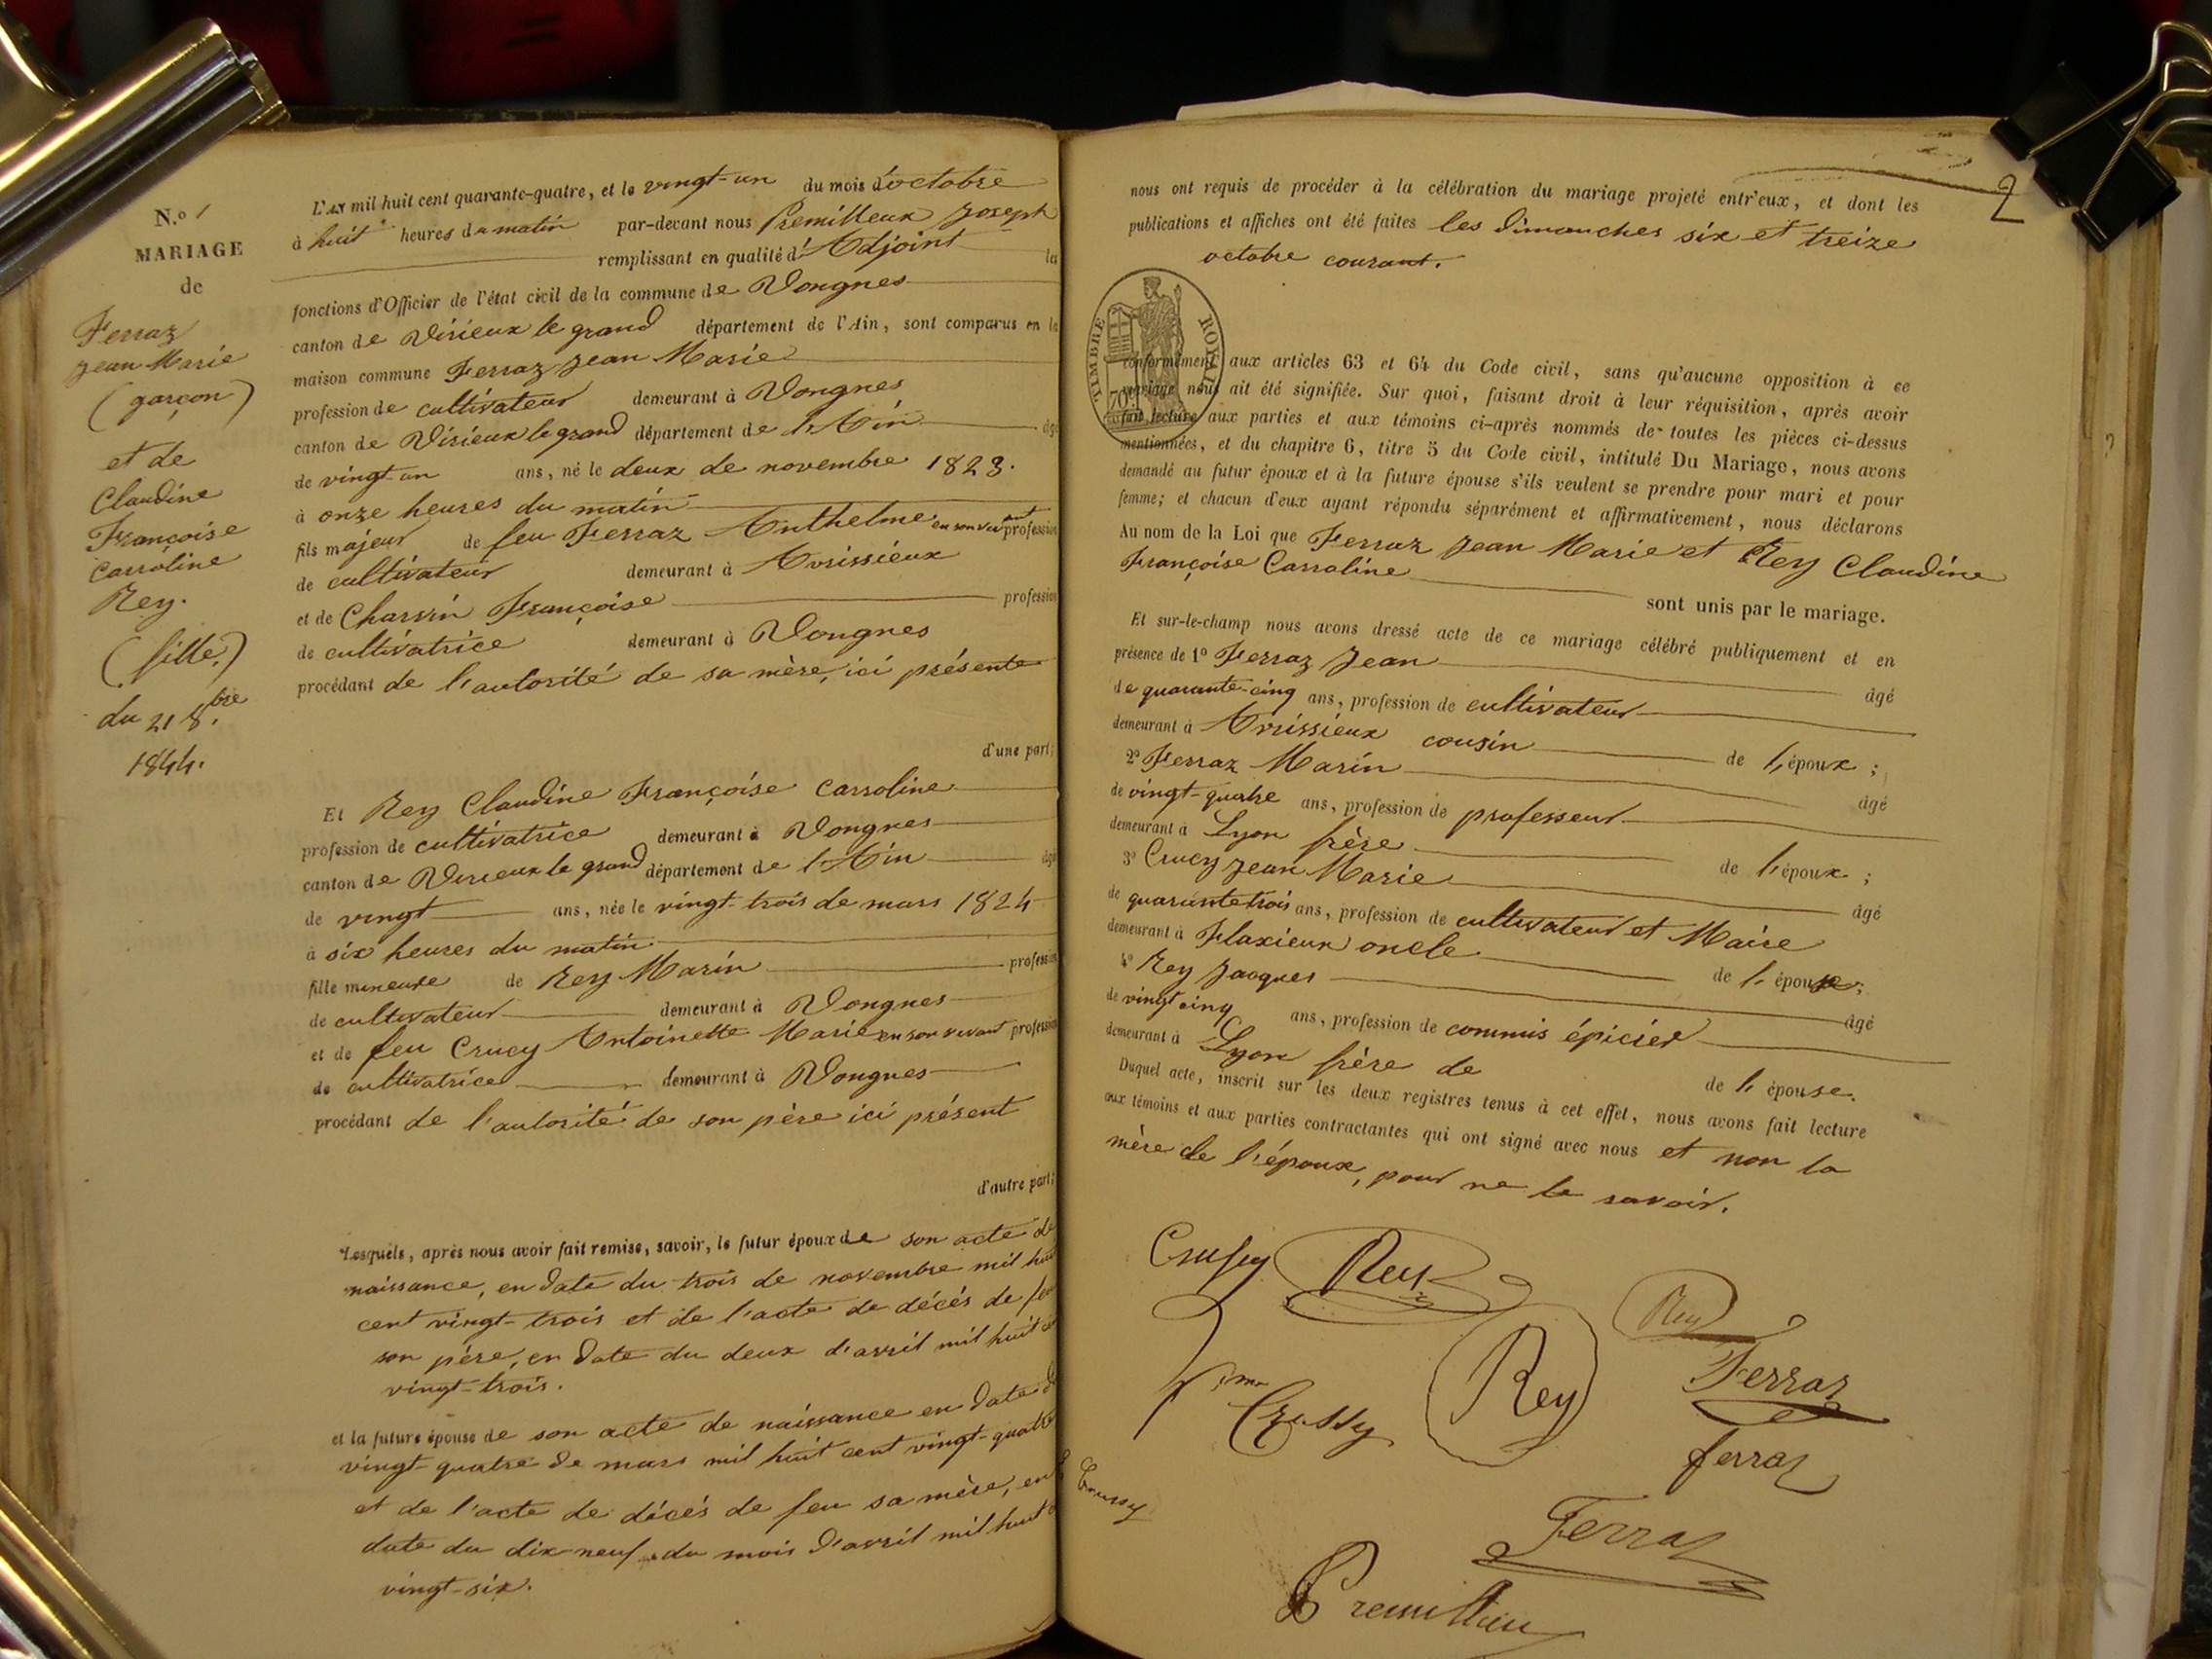 N.o 1
MARIAGE
de
Ferraz
Jean Marie
(garçon)
et de
Claudine
Françoise
Carroline
Rey.
(fille.)
du 21 8.bre
1844.
L'AN mil huit cent quarante-quatre, et le vingt-un du mois d'octobre
à huit heures du matin par-devant nous Premilleux Joseph
remplissant en qualité d'Adjoint les
fonctions d'Officier de l'état civil de la commune de Vongnes
canton de Virieux le grand département de l'Ain, sont comparus en la
maison commune Ferraz Jean Marie
profession de cultivateur demeurant à Vongnes
canton de Virieux le grand département de l'Ain âgé
de vingt-un ans, né le deux de novembre 1823.
à onze heures du matin
fils majeur de feu Ferraz Anthelme en son vivant profession
de cultivateur demeurant à Avrissieux
et de Charvin Françoise profession
de cultivatrice demeurant à Vongnes
procédant de l'autorité de sa mère, ici présente
d'une part;
Et Rey Claudine Françoise Carroline
profession de cultivatrice demeurant à Vongnes
canton de Virieux le grand département de l'Ain âgé
de vingt ans, née le vingt-trois de mars 1824
à six heures du matin.
fille mineure de Rey Marin profession
de cultivateur demeurant à Vongnes
et de feu Crucy Antoinette Marie en son vivant profession
de cultivatrice demeurant à Vongnes
procédant de l'autorité de son père ici présent
d'autre part;
Lesquels, après nous avoir fait remise, savoir, le futur époux de son acte de
naissance, en date du trois de novembre mil huit
cent vingt-trois et de l'acte de décés de feu
son père, en date du deux d'avril mil huit cent
vingt-trois.
et la future épouse de son acte de naissance en date du
vingt-quatre de mars mil huit cent vingt-quatre
et de l'acte de décés de feu sa mère, en
date du dix neuf du mois d'avril mil huit
vingt-six.
2
nous ont requis de procéder à la célébration du mariage projeté entr'eux, et dont les
publications et affiches ont été faites les dimanches six et treize
octobre courant.
TIMBRE ROYAL
70
conformément aux articles 63 et 64 du Code civil, sans qu'aucune opposition à ce
mariage nous ait été signifiée. Sur quoi, faisant droit à leur réquisition, après avoir
fait lecture aux parties et aux témoins ci-après nommés de toutes les pièces ci-dessus
mentionnées, et du chapitre 6, titre 5 du Code civil, intitulé Du Mariage, nous avons
demandé au futur époux et à la future épouse s'ils veulent se prendre pour mari et pour
femme; et chacun d'eux ayant répondu séparément et affirmativement, nous déclarons
Au nom de la Loi que Ferraz Jean Marie et Rey Claudine
Françoise Carroline
sont unis par le mariage.
Et sur-le-champ nous avons dressé acte de ce mariage célébré publiquement et en
présence de 1o Ferraz Jean âgé
de quarante-cinq ans, profession de cultivateur
demeurant à Avrissieux cousin de l'époux;
2o Ferraz Marin âgé
de vingt-quatre ans, profession de professeur
demeurant à Lyon frère de l'époux;
3o Crucy Jean Marie âgé
de quarante trois ans, profession de cultivateur et Maire
demeurant à Flaxieux oncle de l'épouse;
4o Rey Jacques âgé
de vingt cinq ans, profession de commis épicier
demeurant à Lyon frère de de l'épouse.
Duquel acte, inscrit sur les deux registres tenus à cet effet, nous avons fait lecture
aux témoins et aux parties contractantes qui ont signé avec nous et non la
mère de l'époux, pour ne le savoir.
Crussy Rey
Rey
Rey
Ferraz
Crussy
ferraz
Crussy
Ferraz
Premillieu